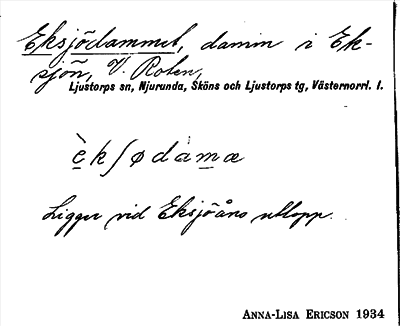 Eksjödammet, damm i Ek-
sjön, V. Roten,
Ljustorps sn, Njurunda, Sköns och Ljustorps tg, Västernorrl. l.
è̱kʃødàmæ
Ligger vid Eksjöåns utlopp.
ANNA-LISA ERICSON 1934